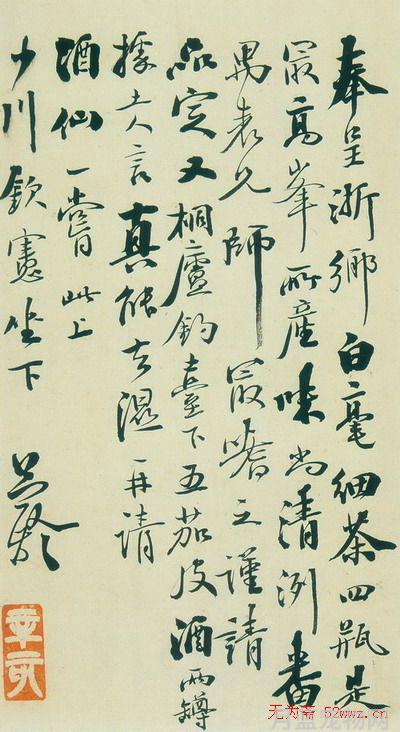 奉呈浙鄉白毫細茶四瓶是
最高峯所產味尚清洌番
禺表兄師最嗜之謹請
品定又桐廬釣臺下五茄皮酒兩罇
據土人言真能去濕再請
酒仙一嘗此上
少川欽憲坐下
无为斋 52wwz.cn